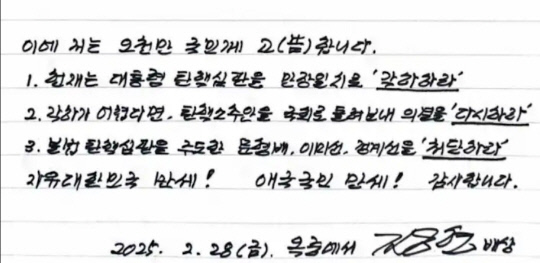 이에 저는 오천만 국민께 고(告)합니다.
1. 헌재는 대통령 탄핵심판을 만장일치로 '각하하라'
2. 각하가 어렵다면, 탄핵소추안을 국회로 돌려보내 의결을 '다시하라'
3. 불법 탄핵심판을 주도한 문형배, 이미선, 정계선을 '처단하라'
자유대한민국 만세! 애국국민 만세! 감사합니다.
2025. 2. 28(금). 옥중에서 배상